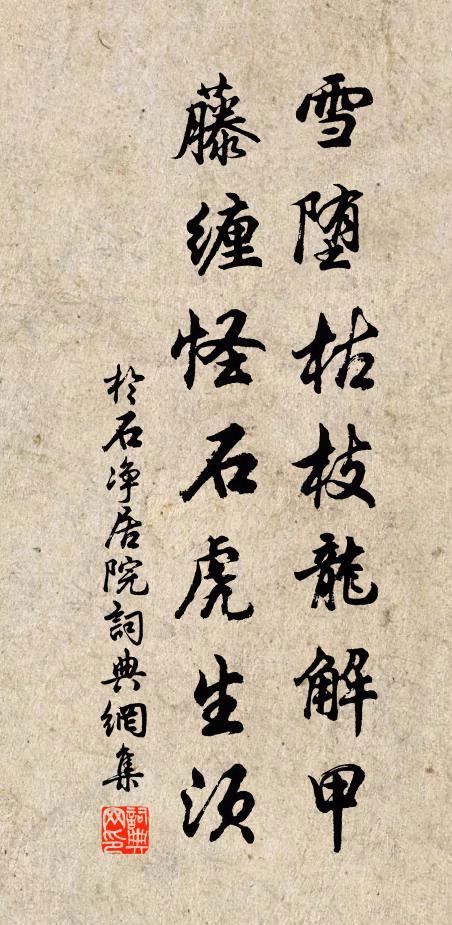 雪堕枯枝龍解甲
藤纏怪石虎生須
於石净居院詞典網集
詞典网印